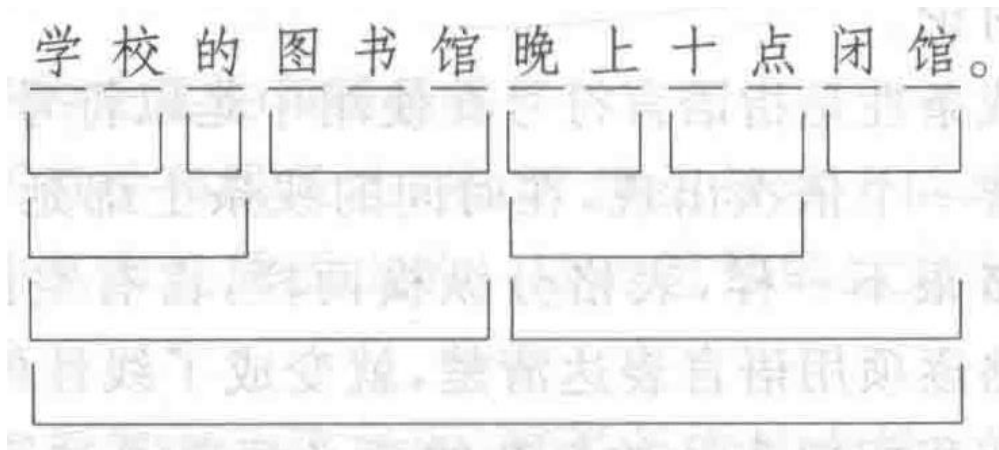 学校的图书馆晚上十点闭馆。